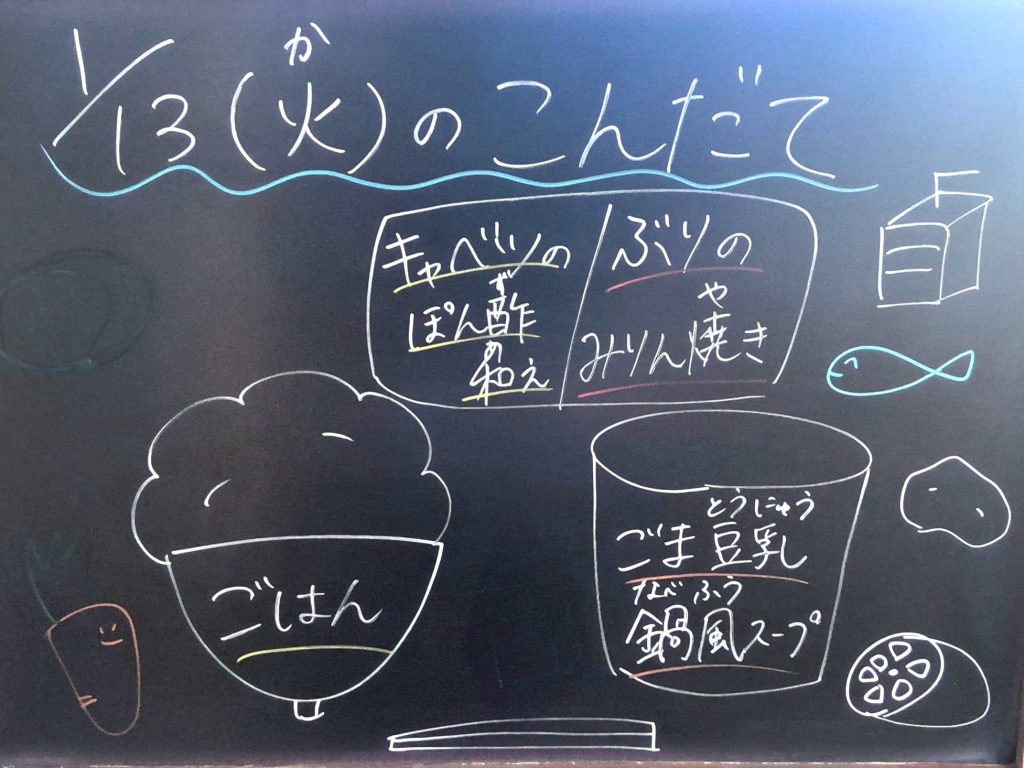 か
1/13(火)のこんだて
キャベツの
ず
ぽん酢
あ
和え
ぶりの
や
みりん焼き
ごはん
とうにゅう
ごま豆乳
なべふう
鍋風スープ